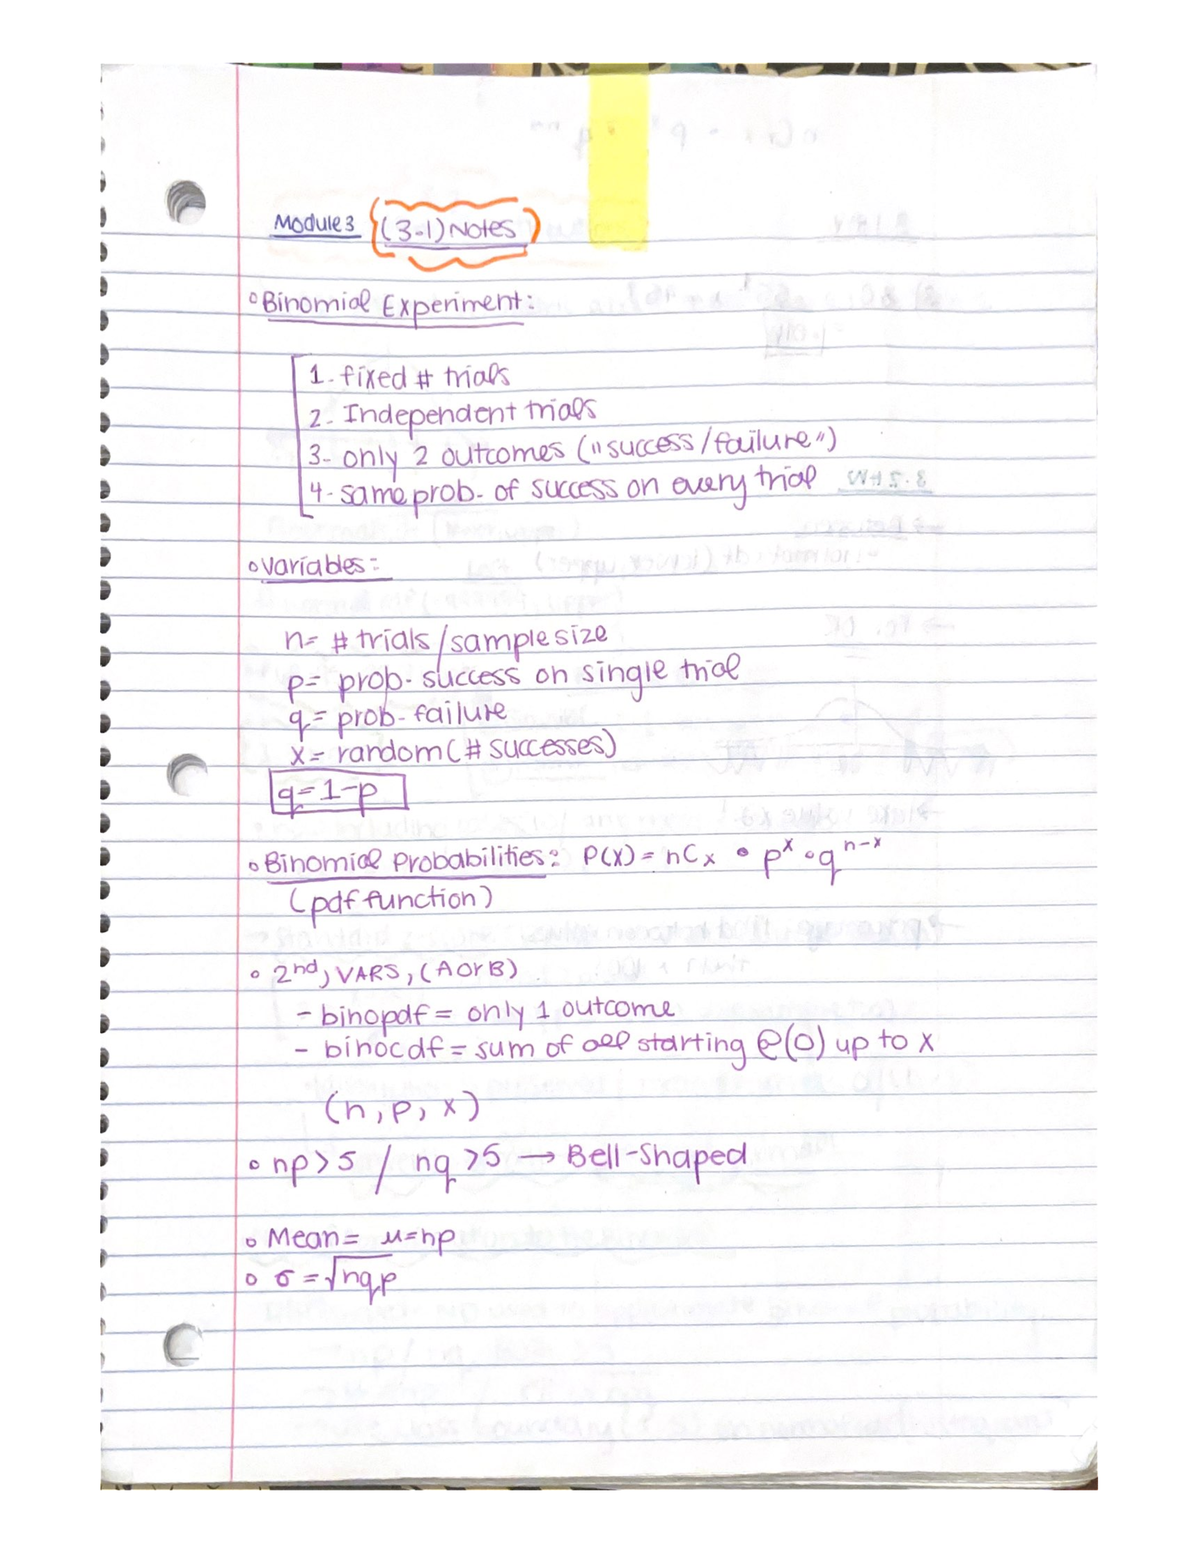 Module 3 (3-1) Notes
Binomial Experiment:
1. fixed # trials
2. Independent trials
3- only 2 outcomes ("success/failure")
4- same prob. of success on every trial
Variables:
n= # trials/sample size
p= prob. success on single trial
q= prob. failure
x= random (# successes)
q=1-p
Binomial Probabilities: P(x) = nCx • p^x • q^n-x
(pdf function)
2nd, VARS, (A or B)
- binopdf = only 1 outcome
- binocdf = sum of all starting @(0) up to x
(n, p, x)
np>5 / nq >5 → Bell-Shaped
Mean= μ=np
σ = √nqp